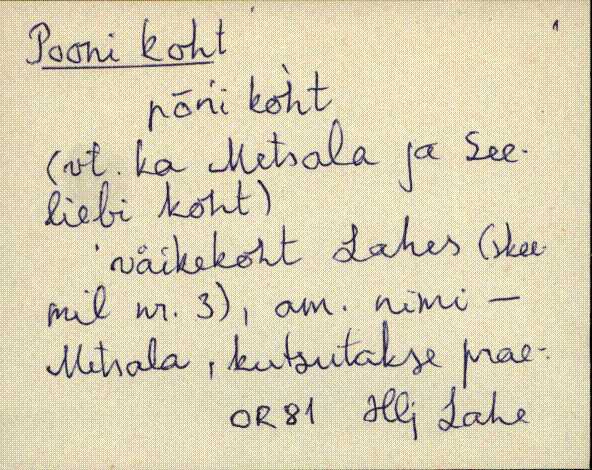 Pooni koht
pōni koht
(vt. ka Metsala ja See-
liebi koht)
väikekoht Lahes (skee-
mil nr. 3), am. nimi –
Metsala, kutsutakse prae-.
OR 81 Hlj Lahe